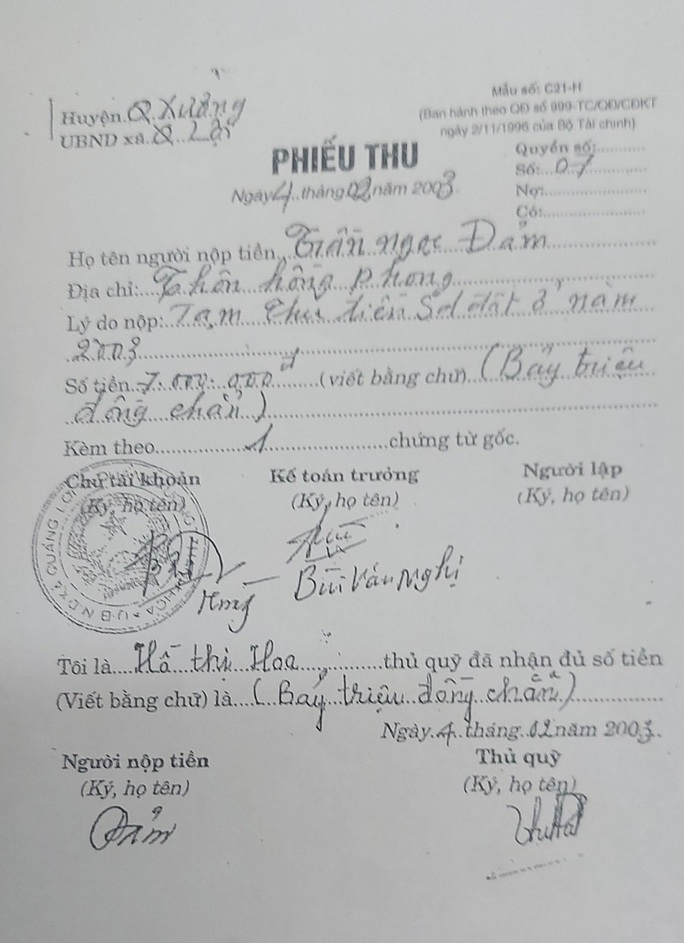 Huyện Q Xương
UBND xã Q Lợi
Mẫu số: C21-H
(Ban hành theo QĐ số 999-TC/QĐ/CĐKT
ngày 2/11/1996 của Bộ Tài chính)
PHIẾU THU
Quyển số:............
Số:...07............
Ngày 4 tháng 02 năm 2003.
Nợ:......................
Có:......................
Họ tên người nộp tiền Trần ngọc Đảm
Địa chỉ: Thôn hồng phong
Lý do nộp: Tạm thu tiền Sd đất ở năm
2003
Số tiền 7.000.000đ (viết bằng chữ) (Bảy triệu
đồng chẵn)
Kèm theo 1 chứng từ gốc.
Chủ tài khoản Kế toán trưởng Người lập
(Ký, họ tên) (Ký, họ tên) (Ký, họ tên)
Bùi Văn Nghị
Tôi là Hồ thị Hoa thủ quỹ đã nhận đủ số tiền
(Viết bằng chữ) là (Bảy triệu đồng chẵn)
Ngày 4 tháng 02 năm 2003.
Người nộp tiền Thủ quỹ
(Ký, họ tên) (Ký, họ tên)
Đảm